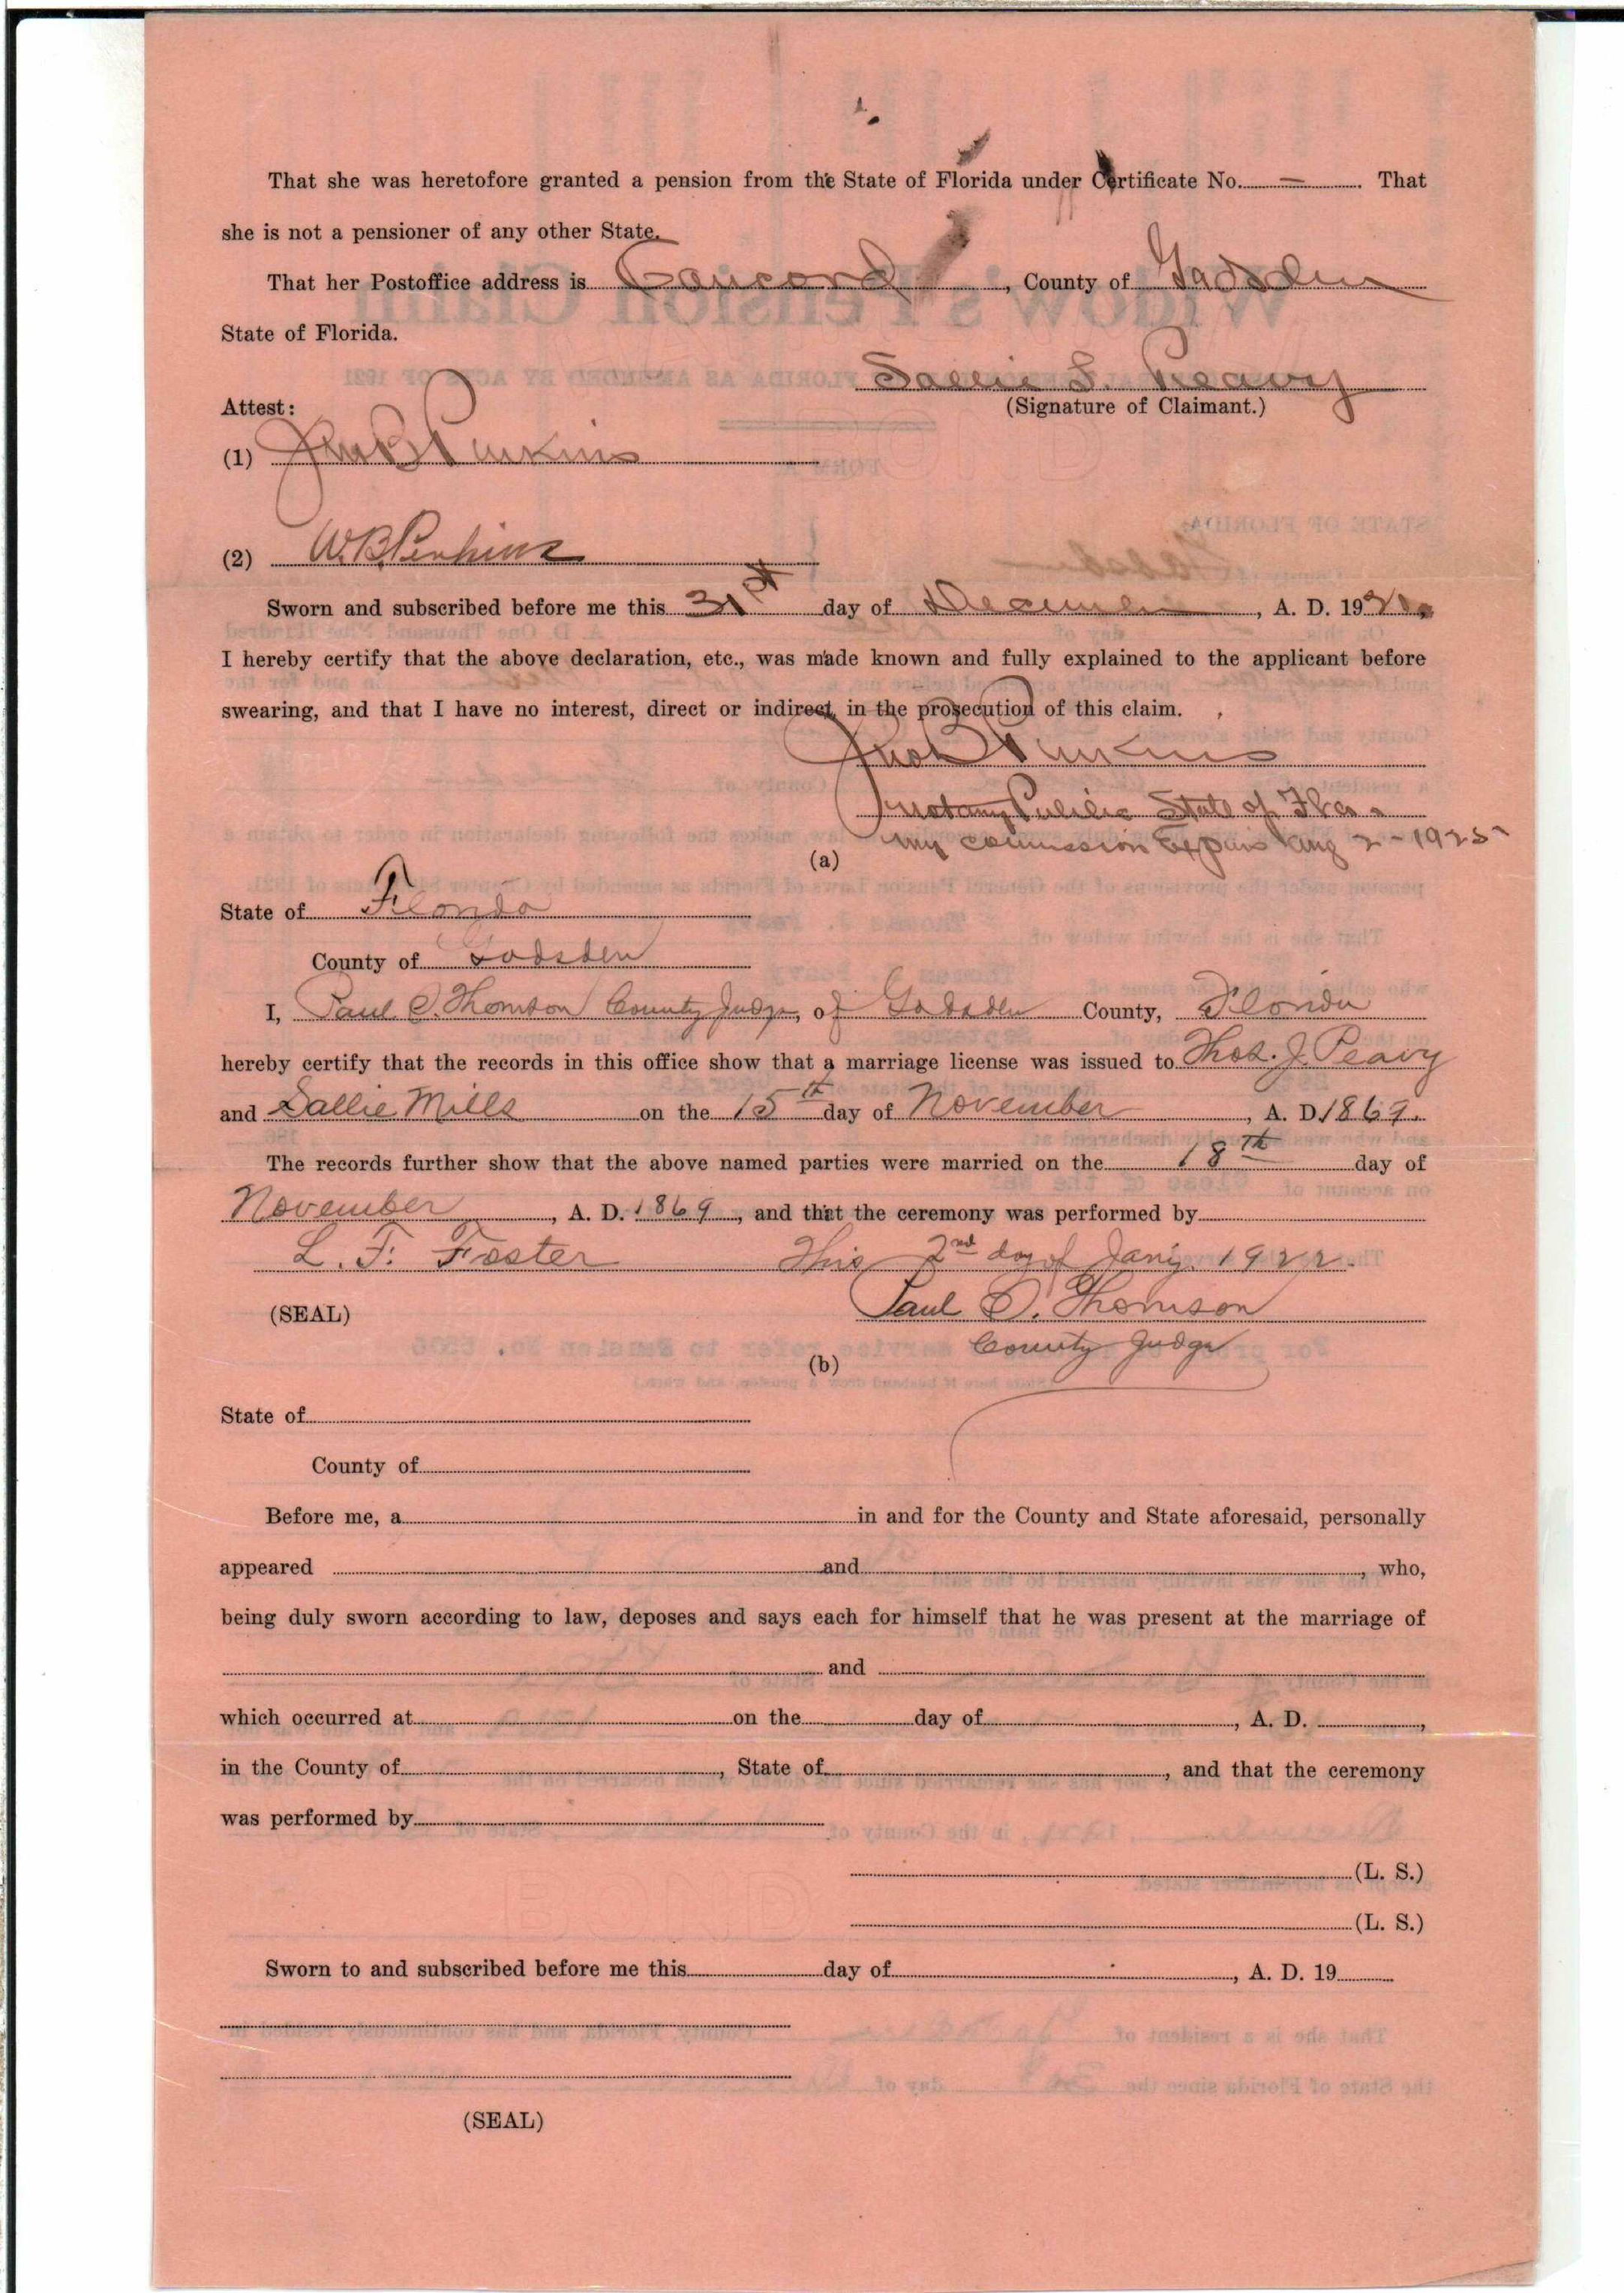 That she was heretofore granted a pension from the State of Florida under Certificate No. — . That
she is not a pensioner of any other State.
That her Postoffice address is Concord, County of Gadsden
State of Florida.
Sallie S. Peavy
Attest: (Signature of Claimant.)
(1) Jno B Perkins
(2) W. B. Perkins
Sworn and subscribed before me this 31st day of December, A. D. 1921.
I hereby certify that the above declaration, etc., was made known and fully explained to the applicant before
swearing, and that I have no interest, direct or indirect, in the prosecution of this claim.
Jno B Perkins
Notary Public State of Fla.
My commission Expires Aug 2 - 1925
(a)
State of Florida
County of Gadsden
I, Paul C. Thomson County Judge, of Gadsden County, Florida
hereby certify that the records in this office show that a marriage license was issued to Thos. J. Peavy
and Sallie Mills on the 15th day of November, A. D. 1869.
The records further show that the above named parties were married on the 18th day of
November, A. D. 1869, and that the ceremony was performed by
L. F. Foster This 2nd day of Jan'y. 1922.
(SEAL) Paul C. Thomson
County Judge
(b)
State of
County of
Before me, a in and for the County and State aforesaid, personally
appeared and , who,
being duly sworn according to law, deposes and says each for himself that he was present at the marriage of
and
which occurred at on the day of , A. D. ,
in the County of , State of , and that the ceremony
was performed by
(L. S.)
(L. S.)
Sworn to and subscribed before me this day of , A. D. 19
(SEAL)